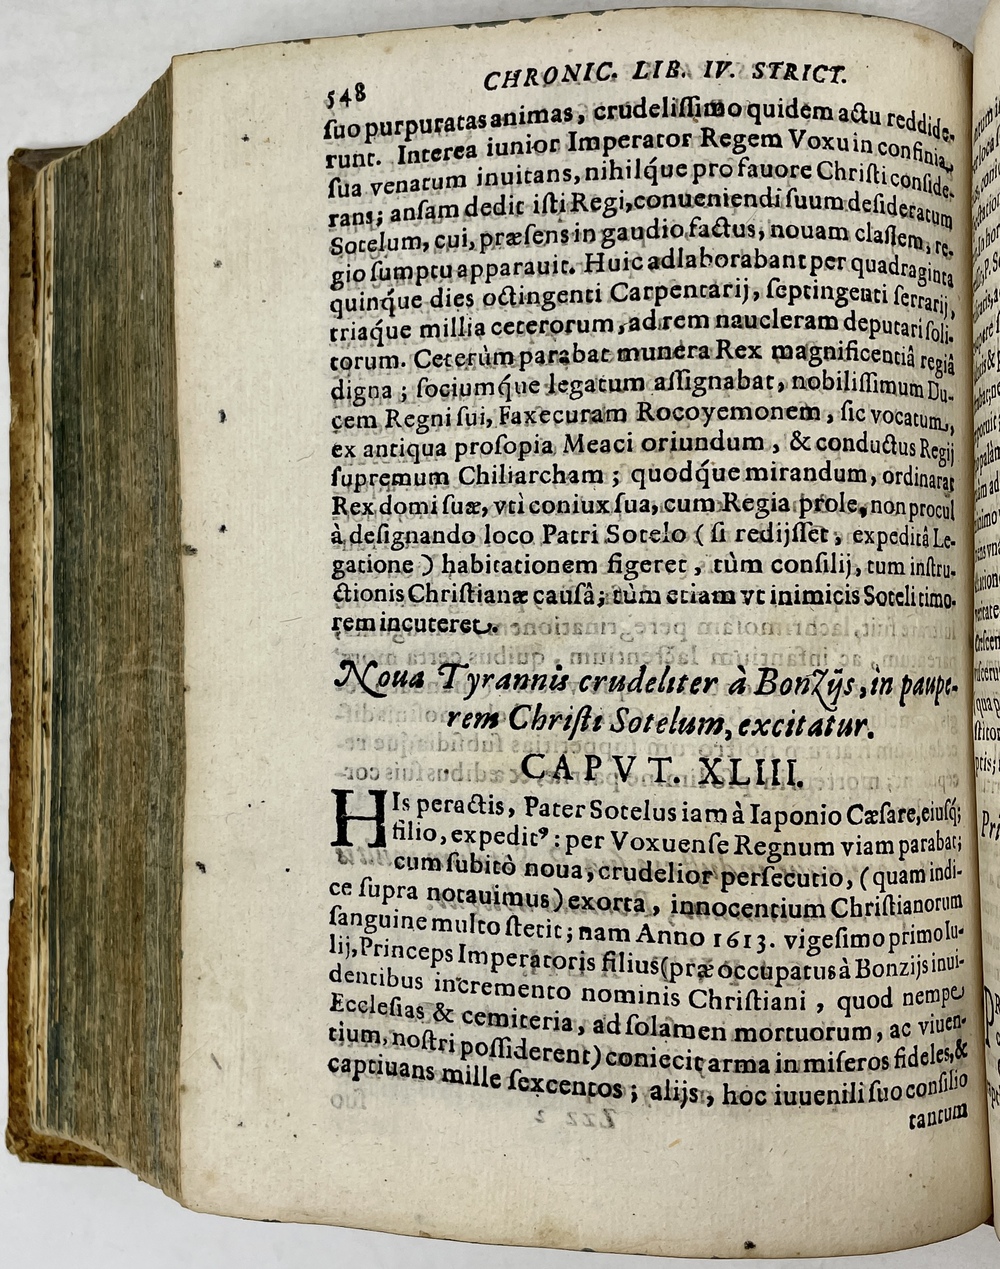 548 CHRONIC. LIB. IV. STRICT.
ſuo purpuratas animas, crudeliſſimo quidem actu reddide-
runt. Interea iunior Imperator Regem Voxu in confinia
ſua venatum inuitans, nihilq́ue pro fauore Chriſti conſide-
rans; anſam dedit iſti Regi, conueniendi ſuum deſideratum
Sotelum, cui, præſens in gaudio factus, nouam claſſem, re-
gio ſumptu apparauit. Huic adlaborabant per quadraginta
quinq́ue dies octingenti Carpentarij, ſeptingenti ferrarij,
triaq́ue millia ceterorum, ad rem naucleram deputari ſoli-
torum. Ceterùm parabat munera Rex magnificentiâ regiâ
digna; ſociumq́ue legatum aſſignabat, nobiliſſimum Du-
cem Regni ſui, Faxecuram Rocoyemonem, ſic vocatum,
ex antiqua proſopia Meaci oriundum, & conductus Regij
ſupremum Chiliarcham; quodq́ue mirandum, ordinarat
Rex domi ſuæ, vti coniux ſua, cum Regia prole, non procul
à deſignando loco Patri Sotelo (ſi redijſſet, expeditâ Le-
gatione) habitationem figeret, tùm conſilij, tum inſtru-
ctionis Chriſtianæ cauſâ; tùm etiam vt inimicis Soteli timo-
rem incuteret.
Noua Tyrannis crudeliter à Bonzijs, in paupe-
rem Chriſti Sotelum, excitatur.
CAPVT. XLIII.
HIs peractis, Pater Sotelus iam à Iaponio Cæſare, eiuſq́;
filio, expedit⁹: per Voxuenſe Regnum viam parabat;
cum ſubitò noua, crudelior perſecutio, (quam indi-
ce ſupra notauimus) exorta, innocentium Chriſtianorum
ſanguine multo ſtetit; nam Anno 1613. vigeſimo primo Iu-
lij, Princeps Imperatoris filius (præoccupatus à Bonzijs inui-
dentibus incremento nominis Chriſtiani, quod nempe
Eccleſias & cemiteria, ad ſolamen mortuorum, ac viuen-
tium, noſtri poſſiderent) coniecit arma in miſeros fideles, &
captiuans mille ſexcentos; alijs, hoc iuuenili ſuo conſilio
tantum